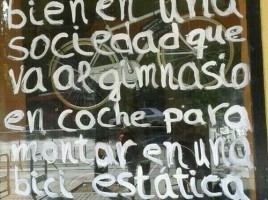 bien en una
sociedad que
va al gimnasio
en coche para
montar en una
bici estática